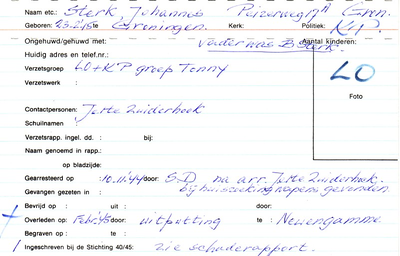 Naam etc.: Sterk, Johannes Peizerweg 17A Gron.
Geboren: 23.2.'15 te Groningen. Kerk: Politiek: K.P.
Ongehuwd/gehuwd met: Vader was B. Sterk. Aantal kinderen:
Huidig adres en telef.nr.:
Verzetsgroep : LO + KP groep Tonny
Verzetswerk :
LO
Foto
Contactpersonen: Jette Zuiderhoek
Schuilnaam :
Verzetsrapp. ingel. dd. : bij:
Naam genoemd in rapp.:
op bladzijde:
Gearresteerd op : 10.11.'44 door: S.D. na arr. Jette Zuiderhoek.
Gevangen gezeten in : bij huiszoeking wapens gevonden
Bevrijd op : uit : door:
+ Overleden op : Febr. '45 door: uitputting te : Neuengamme.
Begraven op : te :
Ingeschreven bij de Stichting 40/45: zie schaderapport.